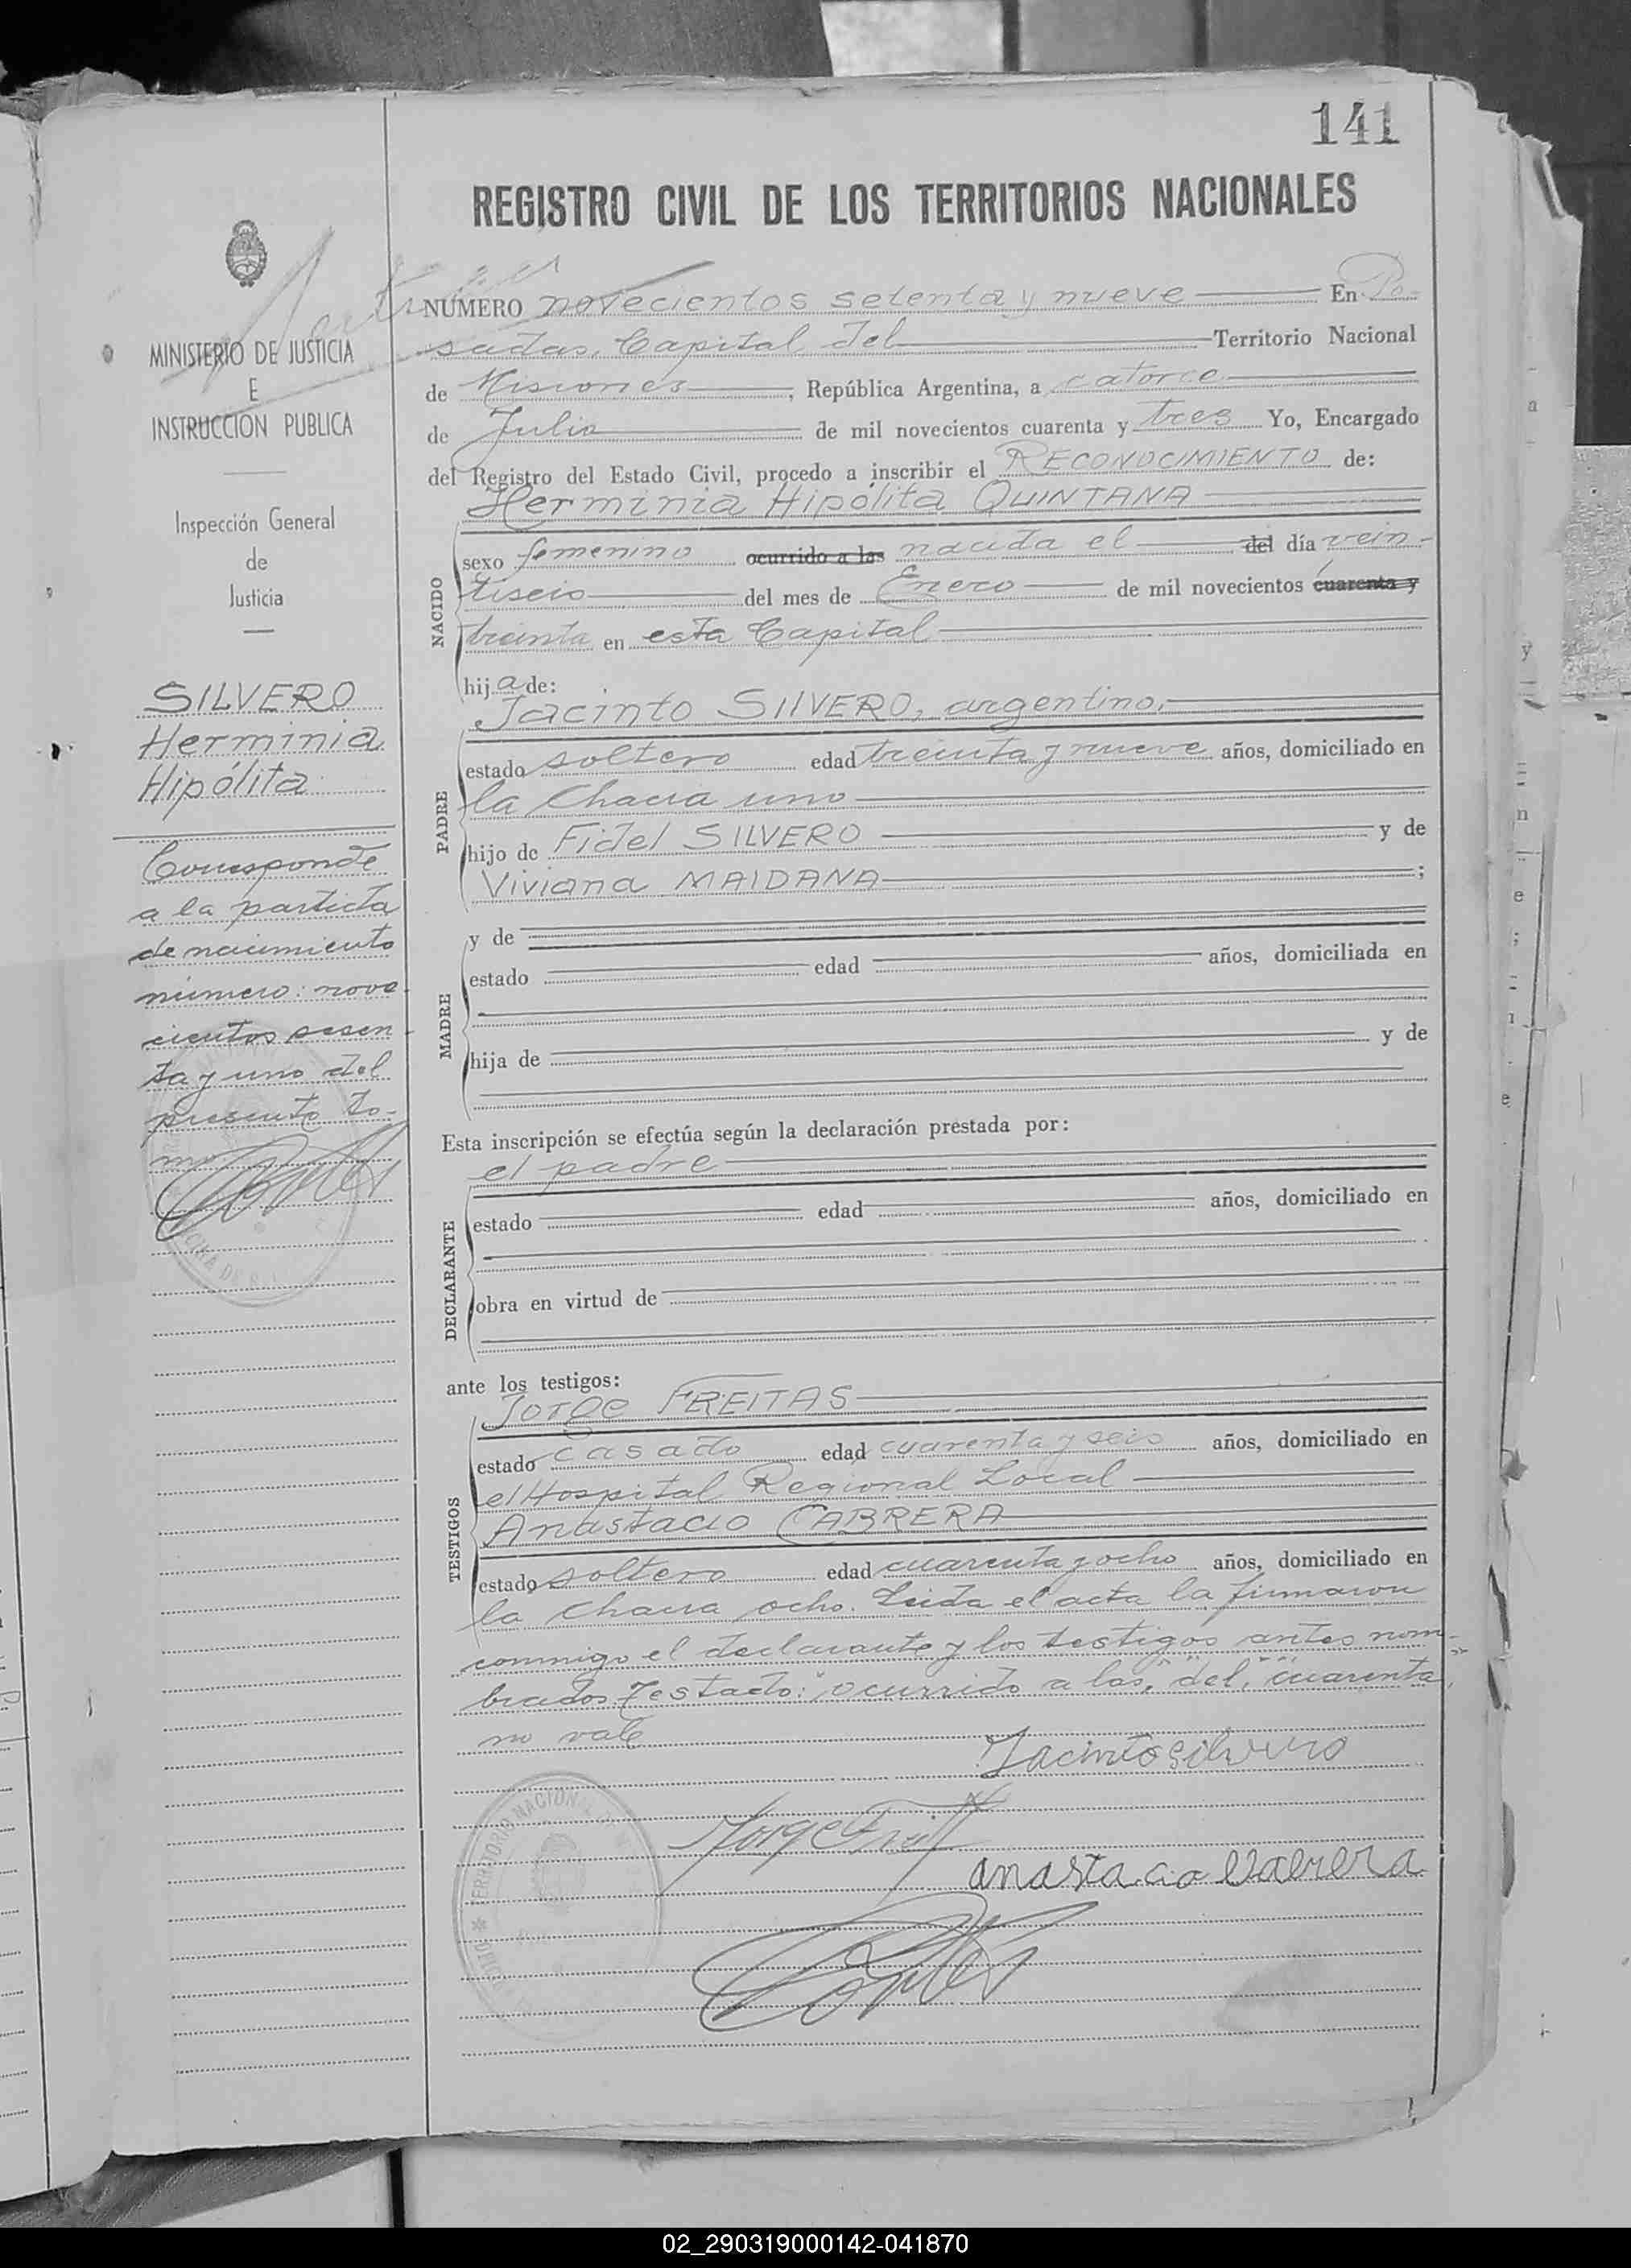 141
REGISTRO CIVIL DE LOS TERRITORIOS NACIONALES
MINISTERIO DE JUSTICIA
E
INSTRUCCION PUBLICA
Inspección General
de
Justicia
SILVERO
Herminia
Hipólita
Corresponde
a la partida
de nacimiento
número: nove-
cientos sesen-
ta y uno del
presente to-
mo
NUMERO novecientos setenta y nueve En Po-
sadas, Capital del Territorio Nacional
de Misiones, República Argentina, a catorce
de Julio de mil novecientos cuarenta y tres Yo, Encargado
del Registro del Estado Civil, procedo a inscribir el RECONOCIMIENTO de:
Herminia Hipólita QUINTANA
NACIDO
sexo femenino ocurrido a las nacida el del día vein-
tiseis del mes de Enero de mil novecientos cuarenta y
treinta en esta Capital
hija de:
Jacinto SILVERO, argentino,
PADRE
estado soltero edad treinta y nueve años, domiciliado en
la Chacra uno
hijo de Fidel SILVERO y de
Viviana MAIDANA ;
MADRE
y de
estado edad años, domiciliada en
hija de y de
Esta inscripción se efectúa según la declaración prestada por:
el padre
DECLARANTE
estado edad años, domiciliado en
obra en virtud de
ante los testigos:
Jorge FREITAS
TESTIGOS
estado casado edad cuarenta y seis años, domiciliado en
el Hospital Regional Local
Anastacio CABRERA
estado soltero edad cuarenta y ocho años, domiciliado en
la Chacra ocho. Leida el acta la firmaron
conmigo el declarante y los testigos antes nom-
brados Testado: "ocurrido a las", "del", "cuarenta y"
no vale
Jacinto Silvero
Jorge Freit
anastacio Cabrera
TERRITORIO NACIONAL
02_290319000142-041870